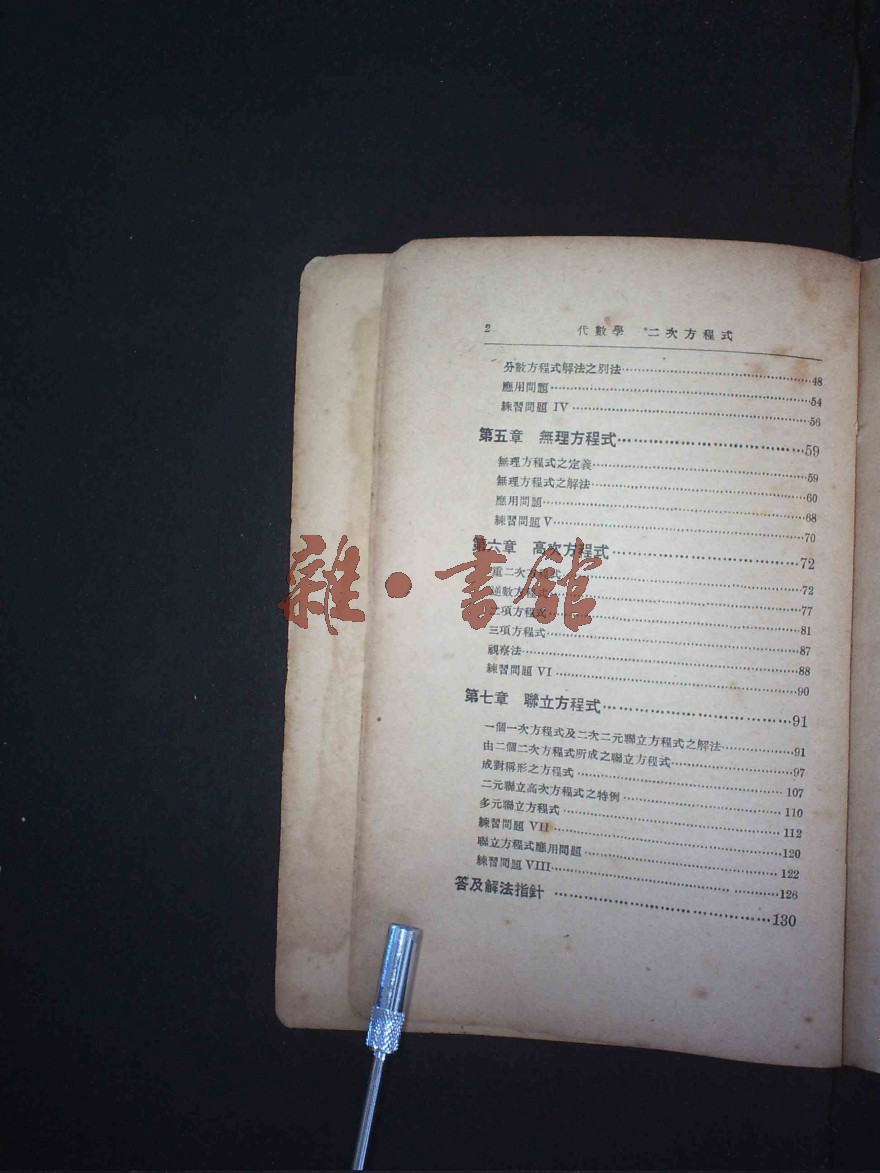 2 代數學 二次方程式
分數方程式解法之別法 48
應用問題 54
練習問題 IV 56
第五章 無理方程式 59
無理方程式之定義 59
無理方程式之解法 60
應用問題 68
練習問題 V 70
第六章 高次方程式 72
重二次方程式 72
逆數方程式 77
二項方程式 81
三項方程式 87
視察法 88
練習問題 VI 90
第七章 聯立方程式 91
一個一次方程式及二次二元聯立方程式之解法 91
由二個二次方程式所成之聯立方程式 97
成對稱形之方程式 107
二元聯立高次方程式之特例 110
多元聯立方程式 112
練習問題 VII 120
聯立方程式應用問題 122
練習問題 VIII 126
答及解法指針 130
雜·書館